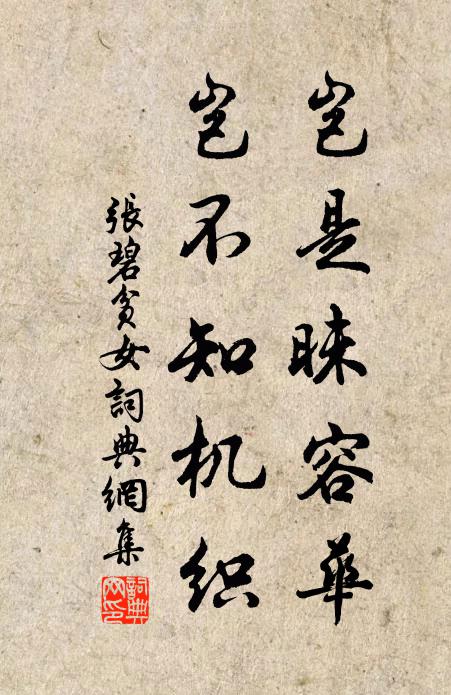 岂是昧容華
岂不知机织
張碧貧女詞典網集
詞典
网印